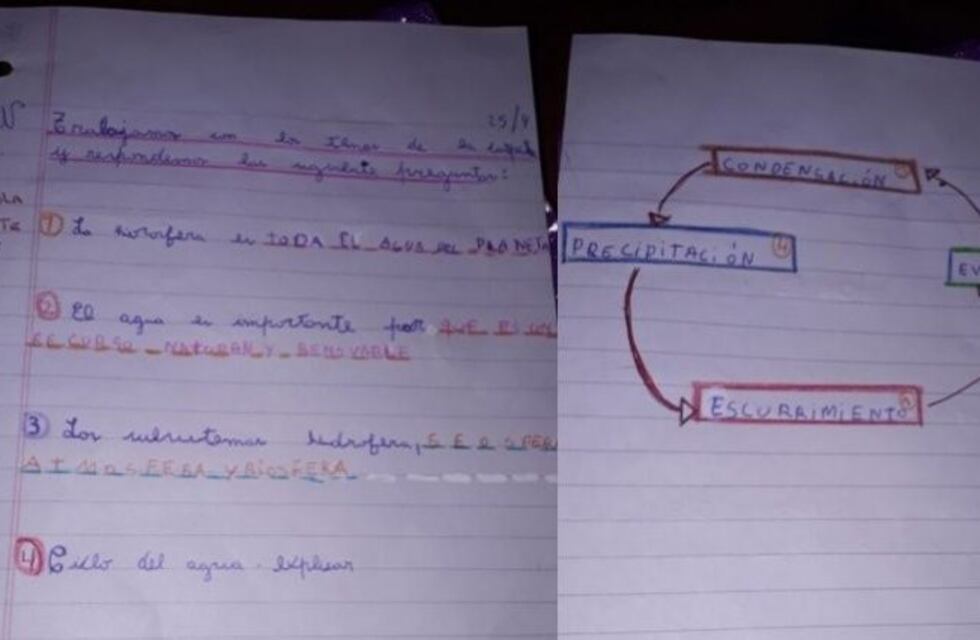 25/9
Trabajamos con los temas de la
y respondemos las siguiente preguntas:
LA
1 La hidrosfera es TODA EL AGUA DEL PLANETA
2 El agua es importante por QUE ES UN
RECURSO NATURAL Y RENOVABLE
3 Los subsistemas hidrosfera,
ATMOSFERA Y BIOSFERA
4 Ciclo del agua. Explicar
CONDENSACIÓN
PRECIPITACIÓN 4
EV
ESCURRIMIENTO